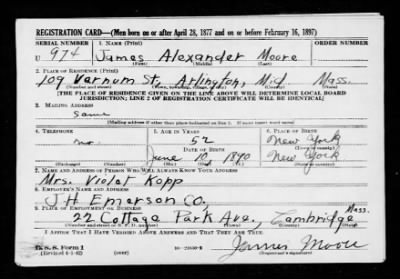 REGISTRATION CARD—(Men born on or after April 28, 1877 and on or before February 16, 1897)
SERIAL NUMBER 1. NAME (Print) ORDER NUMBER
U 974 James Alexander Moore
(First) (Middle) (Last)
2. PLACE OF RESIDENCE (Print)
109 Varnum St, Arlington, Mid. Mass.
(Number and street) (Town, township, village, or city) (County) (State)
[THE PLACE OF RESIDENCE GIVEN ON THE LINE ABOVE WILL DETERMINE LOCAL BOARD
JURISDICTION; LINE 2 OF REGISTRATION CERTIFICATE WILL BE IDENTICAL]
3. MAILING ADDRESS
Same
[Mailing address if other than place indicated on line 2. If same insert word same]
4. TELEPHONE 5. AGE IN YEARS 6. PLACE OF BIRTH
no. 52 New York
DATE OF BIRTH (Town or county)
June 10 1890 New York
(Exchange) (Number) (Mo.) (Day) (Yr.) (State or country)
7. NAME AND ADDRESS OF PERSON WHO WILL ALWAYS KNOW YOUR ADDRESS
Mrs. Violet Kopp
8. EMPLOYER'S NAME AND ADDRESS
J H Emerson Co.
9. PLACE OF EMPLOYMENT OR BUSINESS
22 Cottage Park Ave, Cambridge Mass.
(Number and street or R. F. D. number) (Town) (County) (State)
I AFFIRM THAT I HAVE VERIFIED ABOVE ANSWERS AND THAT THEY ARE TRUE.
D. S. S. Form 1
(Revised 4-1-42) (over) James Moore
(Registrant's signature)